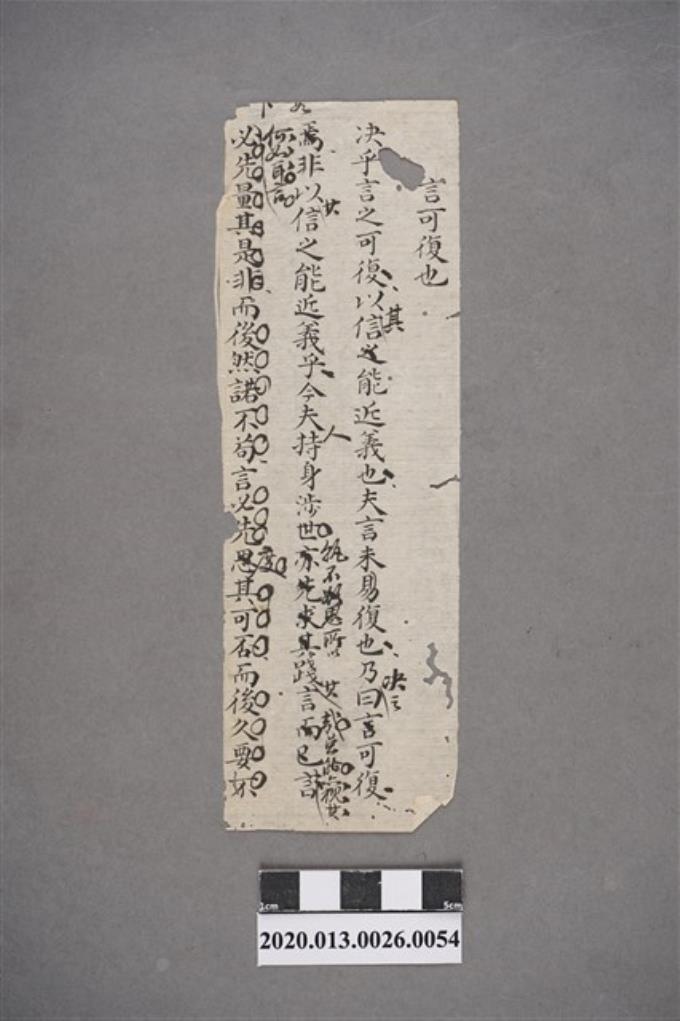 言可復也
決乎言之可復以信之能近義也夫言未易復也乃曰言可復
其
決之
焉非以信之能近義乎今夫持身涉世亦先求其踐言而已
人
孰不思所以
其
何如
必先量其是非而後然諾不苟言必先思其可否而後久要
度
1cm
5cm
2020.013.0026.0054